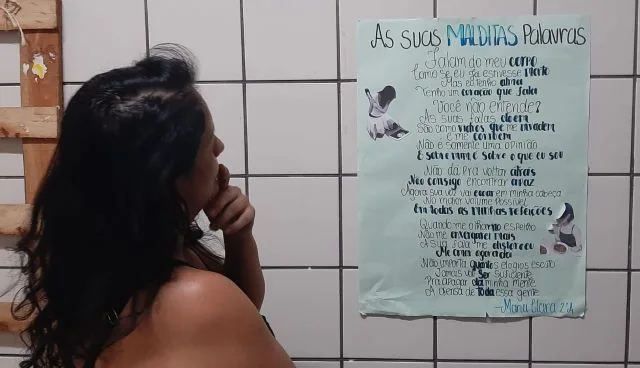 As suas MALDITAS Palavras
Falam do meu corpo
Como se eu já estivesse morto
Mas eu tenho alma
Tenho um coração que fala
Você não entende?
As suas falas doem
São como vichos que me invadem
e me corroem
Não é somente uma opinião
É sobre mim é sobre o que eu sou
Não dá pra voltar atrás
Não consigo encontrar a paz
Agora sua voz vai ecoar em minha cabeça
No maior volume possível
Em todas as minhas refeições
Quando me olho no espelho
Não me enxergarei mais
A sua fala me distorceu
Me crín agorada
Não importa quantos elogios escuto
Jamais vai ser suficiente
Pra apagar da minha mente
A ofensa de toda essa gente
2°A